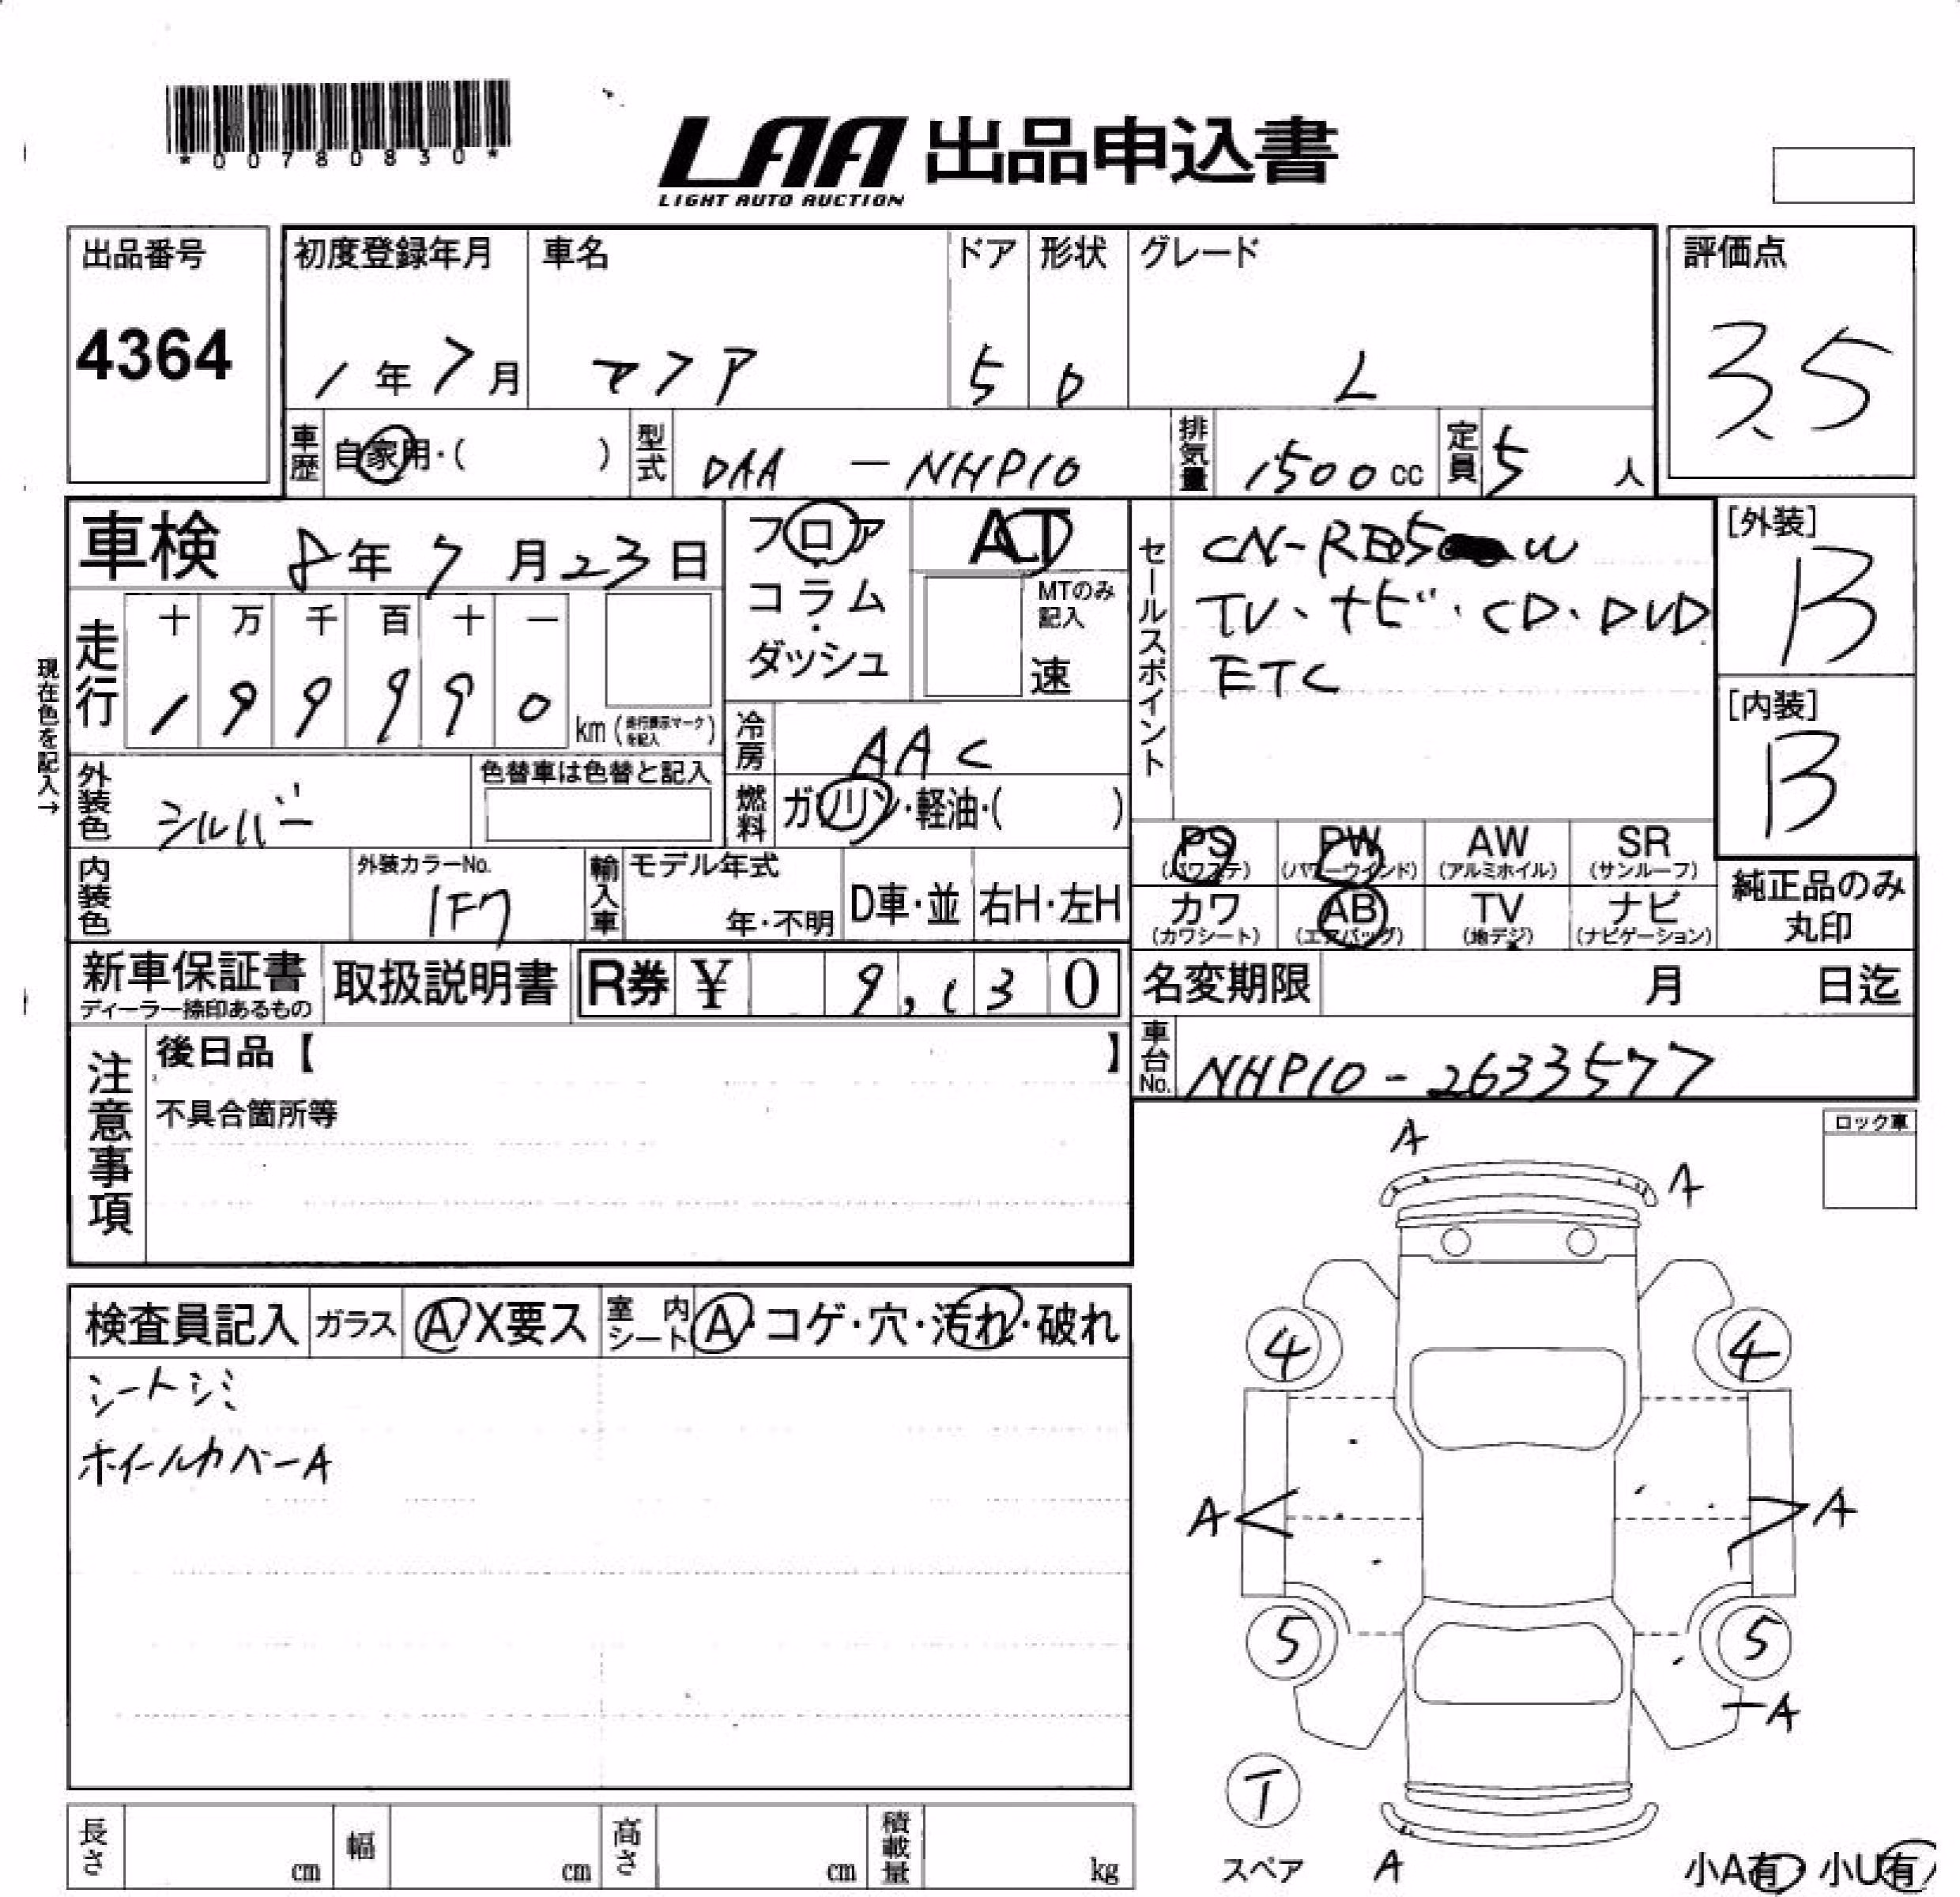 *00780830*
LAA 出品申込書
LIGHT AUTO AUCTION
出品番号
4364
初度登録年月
1年7月
車名
アクア
ドア
5
形状
D
グレード
L
評価点
3.5
車歴 自家用・( )
型式 DAA - NHP10
排気量 1500cc
定員 5人
車検 8年7月23日
走行
十 万 千 百 十 一
1 9 9 9 9 0
km (走行表示マークを記入)
現在色を記入→
フロア
コラム
・
ダッシュ
AT
MTのみ記入
速
冷房 AAC
燃料 ガソリン・軽油・( )
セールスポイント
TV・ナビ・CD・DVD
ETC
[外装]
B
[内装]
B
外装色 シルバー
色替車は色替と記入
内装色
外装カラーNo.
1F7
輸入車
モデル年式
年・不明
D車・並
右H・左H
PS
(パワステ)
PW
(パワーウインド)
AW
(アルミホイル)
SR
(サンルーフ)
カワ
(カワシート)
AB
(エアバッグ)
TV
(地デジ)
ナビ
(ナビゲーション)
純正品のみ
丸印
新車保証書
ディーラー捺印あるもの
取扱説明書
R券 ¥ 9,130
名変期限 月 日迄
車台No. NHP10-2633577
注意事項
後日品【 】
不具合箇所等
ロック車
検査員記入
ガラス A X要ス
室内シート A・コゲ・穴・汚れ・破れ
シートシミ
ホイールカバーA
A
A
4
4
A
A
5
5
A
T
スペア
A
小A有・小U有
長さ cm
幅 cm
高さ cm
積載量 kg